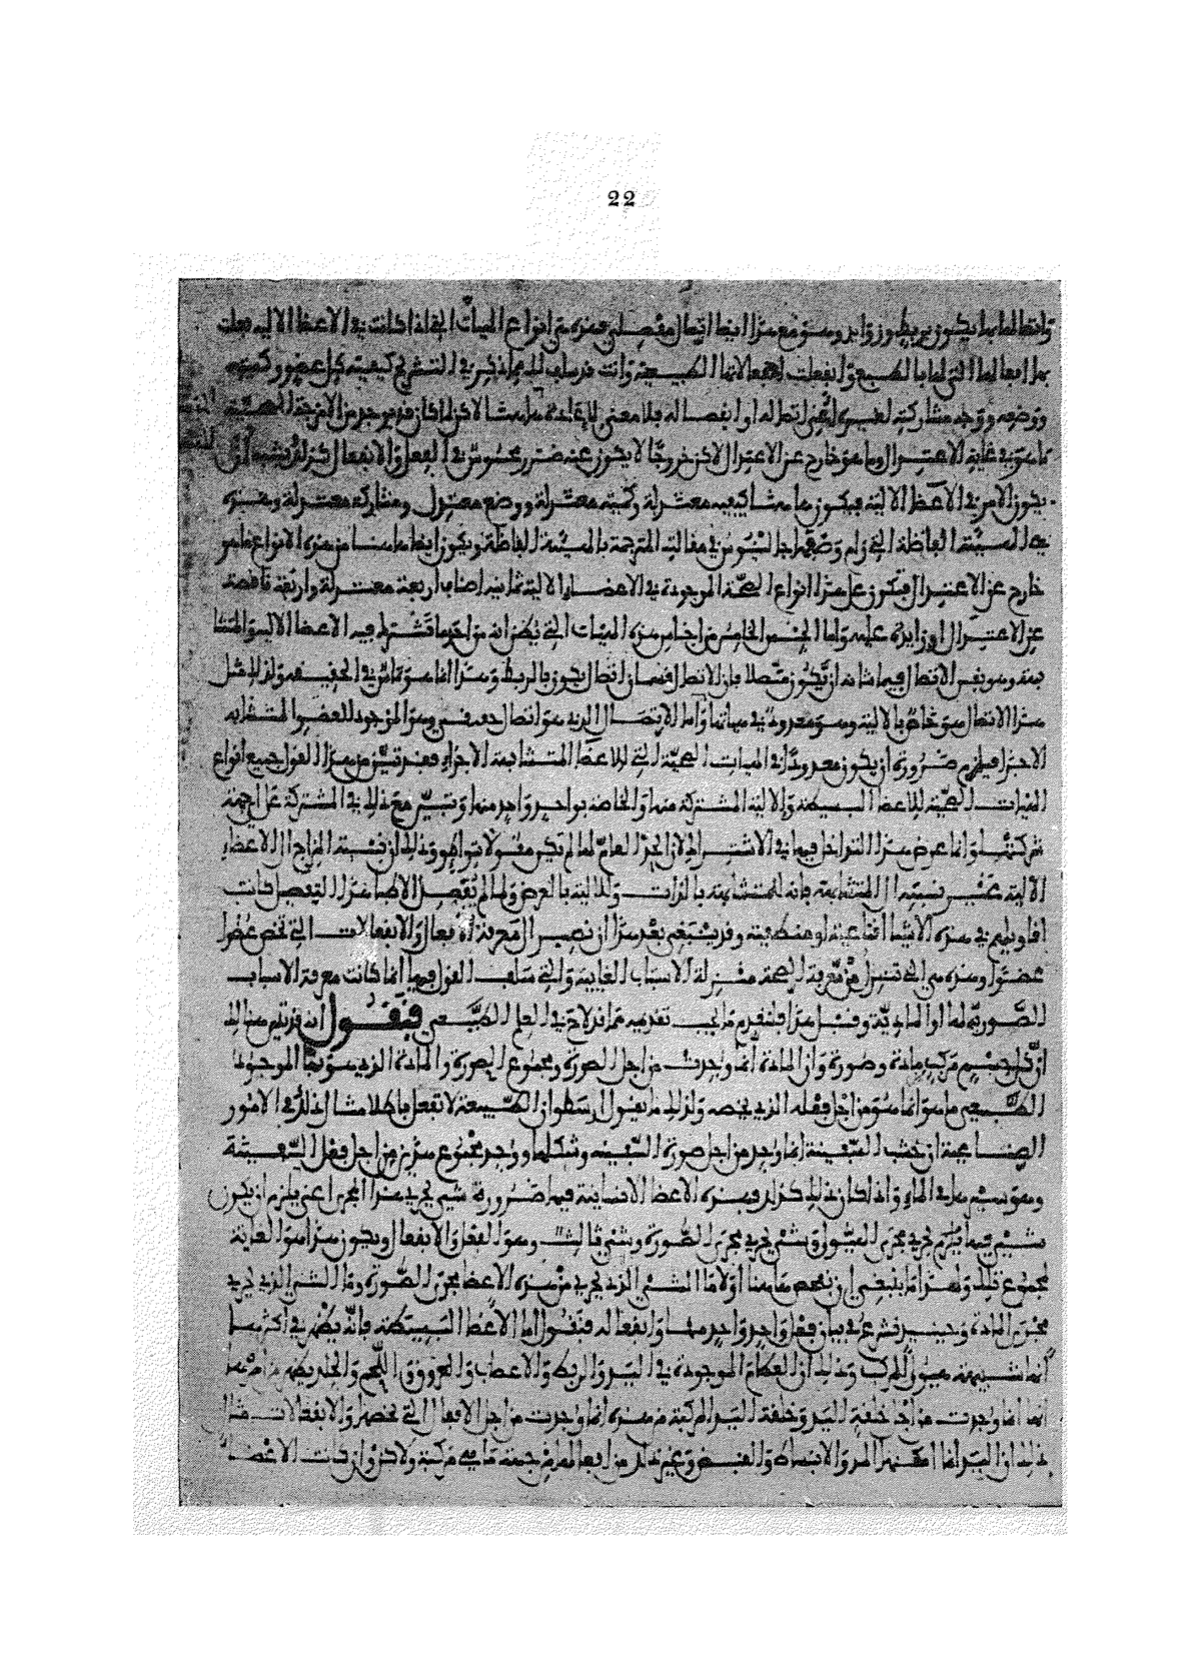 22
واتصالها بما يكون بربط وزوايد وهو مع هذا ايضا اتصال مفصلي فهذه هي انواع الهيات التي اذا كانت في الاعضا الالية فعلت
بها افعالها التي لها بالطبع وانفعلت انفعالاتها الطبيعية وانت قد سلف لك مما ذكر في التشريح كيفية كل عضو وكميته
ووضعه ووجه مشاركته لغيره اعني اتصاله او انفصاله فلا معنى لاعادة ما هنا لاكن لما كان قد يوجد من الامزجة الصحية
ما هو في غاية الاعتدال وما هو خارج عن الاعتدال لاكن خروجا لا يكون عنه ضرر محسوس في الفعل والانفعال كذلك يشبه ان
يكون الامر في الاعضا الالية فيكون ما هنا كيفية معتدلة وكمية معتدلة ووضع معتدل ومشاركة معتدلة وهذه
هي الهيئة الفاضلة التي رام وصفها جالينوس في مقالته المترجمة بالهيئة الفاضلة ويكون ايضا ما هنا من هذه الانواع ما هو
خارج عن الاعتدال فتكون على هذا انواع الصحة الموجودة في الاعضا الالية ثمانية اصناف اربعة معتدلة واربعة ناقصة
عن الاعتدال او زايدة عليه واما الجنس الخامس من اجناس هذه الهيات التي يظن انه من احدما تشترك فيه الاعضا الالية والمتشا
بهة وهو نفس الاتصال فيما شانه ان يكون متصلا فان الاتصال فمنه اتصال يكون بالربط وهذا انما هو تماس في الحقيقة ولذلك مثل
هذا الاتصال هو خاص بالالية وهو معدود في هياتها واما الاتصال الذي هو اتصال حقيقي وهو الموجود للعضو المتشابه
الاجزا فيلزم ضرورة ان يكون معدودا في الهيات الصحية التي للاعضا المتشابهة الاجزاء فقد تبين من هذا القول جميع انواع
الهيات الصحية للاعضا البسيطة والالية المشتركة منها والخاصة بواحد واحد منها وتبين مع ذلك في المشتركة على اي جهة
شركتها وانما عرض هذا التداخل فيها في الاشتراك لان الحد العام لها لم يكن مقولا بتواطؤ وذلك ان نسبة المزاج الى الاعضاء
الالية غير نسبته الى المتشابهة بانه للمتشابهة بالذات وللالية بالعرض ولما لم يفصل الاطبا هذا التفصيل كانت
اقاويلهم في هذه الاشيا اقناعية او منطقية وقد ينبغي بعد هذا ان نصير الى معرفة الافعال والانفعالات التي تخص عضوا
عضوا وهذه هي التي تتنزل من معرفة الصحة منزلة الاسباب الغايية والتي سلف القول فيها انما كانت معرفة الاسباب
الصورية لها او المادية وقبل هذا فلنقدم ما يجب تقديمه مما قد لاح في العلم الطبيعي فنقول انه قد تبين هنالك
ان كل جسم مركب من مادة وصورة وان المادة انما وجدت من اجل الصورة ومجموع الصورة والمادة الذي هو الموجود
الطبيعي ما هو انما هو من اجل فعله الذي يخصه ولذلك ما يقول ارسطو ان الطبيعة لا تفعل باطلا مثال ذلك في الامور
الصناعية ان خشب السفينة انما وجد من اجل صورة السفينة وشكلها ووجد مجموع هذين من اجل فعل السفينة
وهو سيرها في الماء واذا كان ذلك كذلك فهذه الاعضا الانسانية فيها ضرورة شيء يجري هذا المجرى اعني يلزم ان يكون
شيء فيها يجري مجرى الهيولى وشيء يجري مجرى الصورة وشيء ثالث وهو الفعل والانفعال ويكون هذا هو الغاية
لمجموع تلك ولهذا ما ينبغي ان نفحص ها هنا اولا ما الشيء الذي يجري من هذه الاعضا مجرى الصورة وما الشيء الذي يجري
مجرى المادة وحينئذ نشرع في بيان فعل واحد واحد منها وانفعاله فنقول اما الاعضا البسيطة فانه يظهر في اكثرها
انما نسبته هيولى المركب وذلك ان العظام الموجودة في اليد والربط والاعصاب والعروق واللحم والجلد يظهر من امرها
انها انما وجدت من اجل خلقة اليد وخلقة اليد المركبة من هذه انما وجدت من اجل الافعال التي تخصها والانفعالات مثال
ذلك ان اليد انما امكنها المد والانبساط والقبض وغير ذلك من افعالها من جهة ما هي مركبة ولاكن وان كانت الاعضا